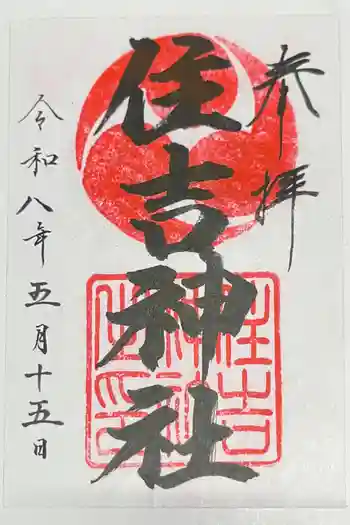 奉拝
住吉神社
令和八年五月十五日
住吉神社之印